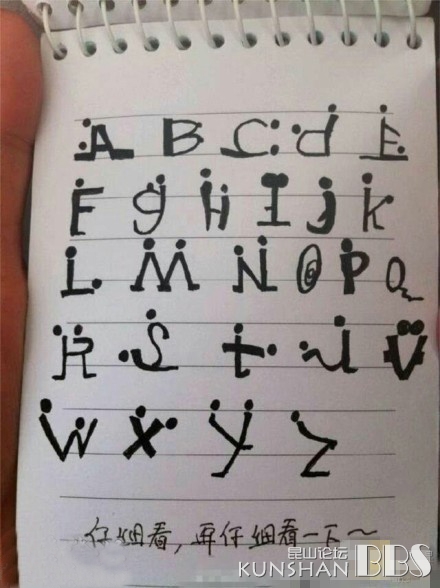 A B C d E
F g H I j K
L M N O P Q
R S t U V
W X Y Z
仔细看,再仔细看一下~
昆山论坛
KUNSHAN BBS